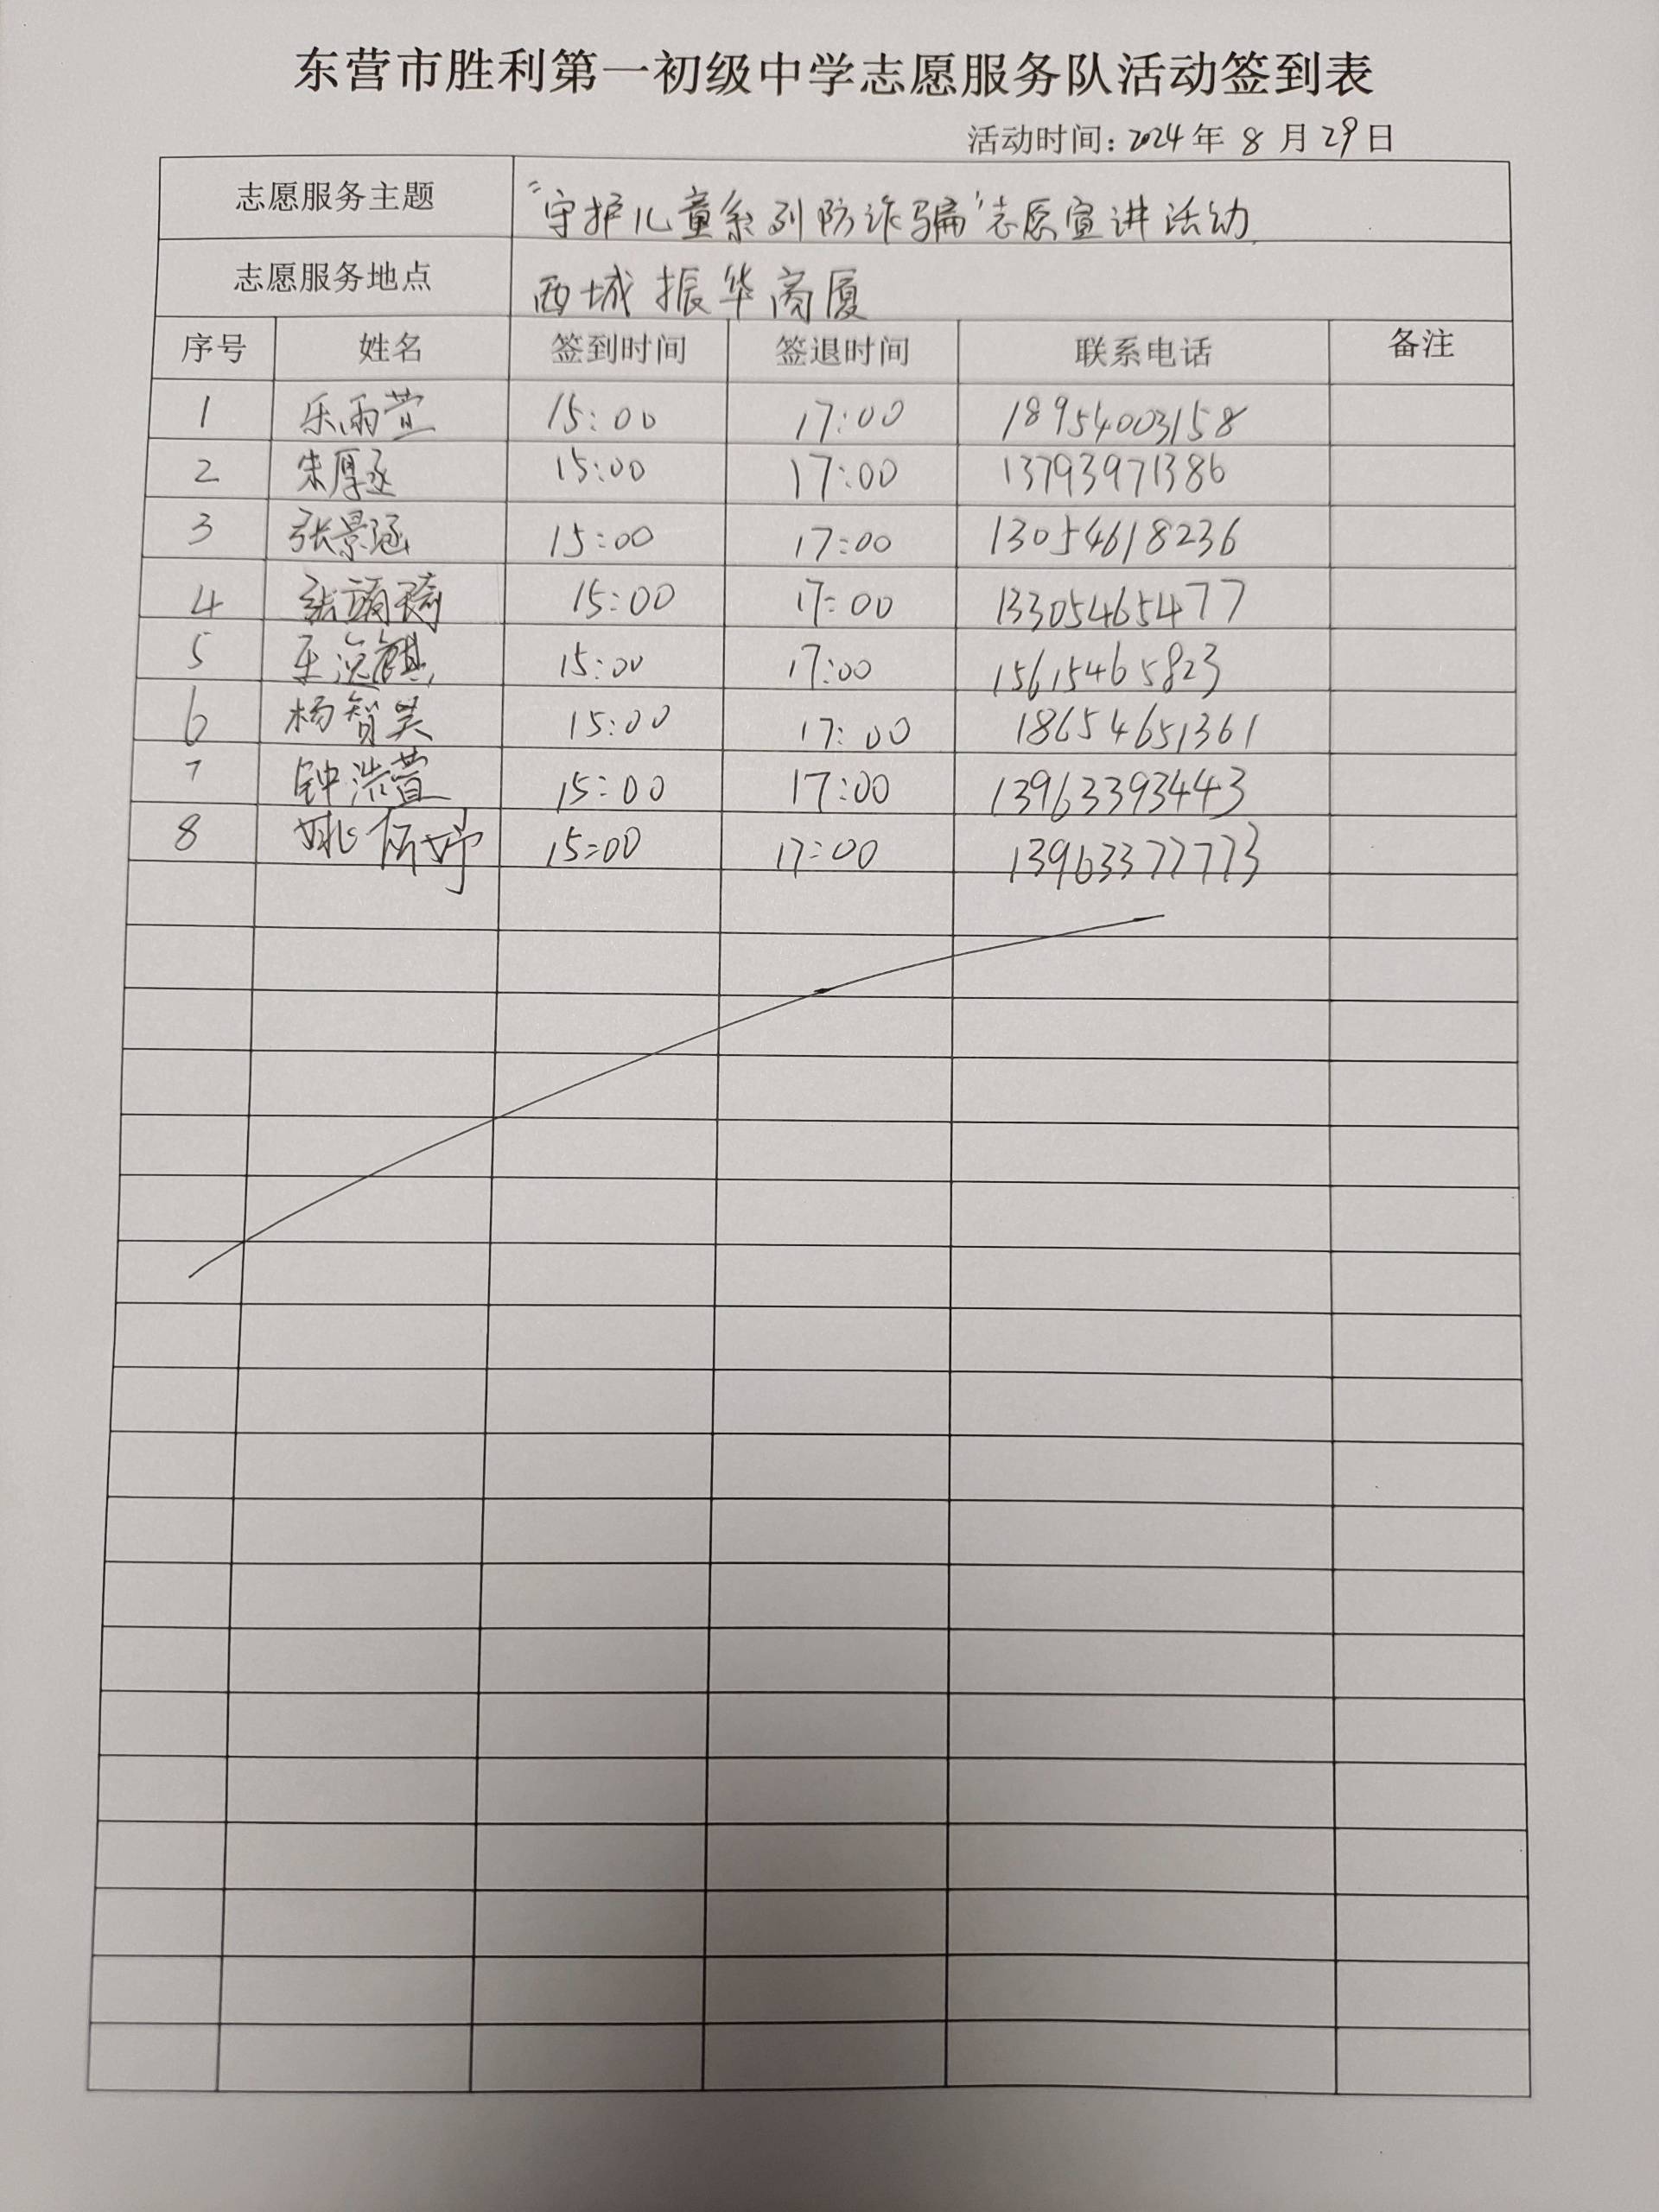 东营市胜利第一初级中学志愿服务队活动签到表
活动时间：2024年 8 月 29日
志愿服务主题 “守护儿童系列防诈骗”志愿宣讲活动
志愿服务地点 西城振华商厦
序号 姓名 签到时间 签退时间 联系电话 备注
1 乐雨萱 15:00 17:00 18954003158
2 朱厚丞 15:00 17:00 13793971386
3 张景涵 15:00 17:00 13054618236
4 张 15:00 17:00 13305465477
5 王 15:00 17:00 15615465823
6 杨智 15:00 17:00 18654651361
7 钟浩萱 15:00 17:00 13963393443
8 姚 15:00 17:00 13963377773